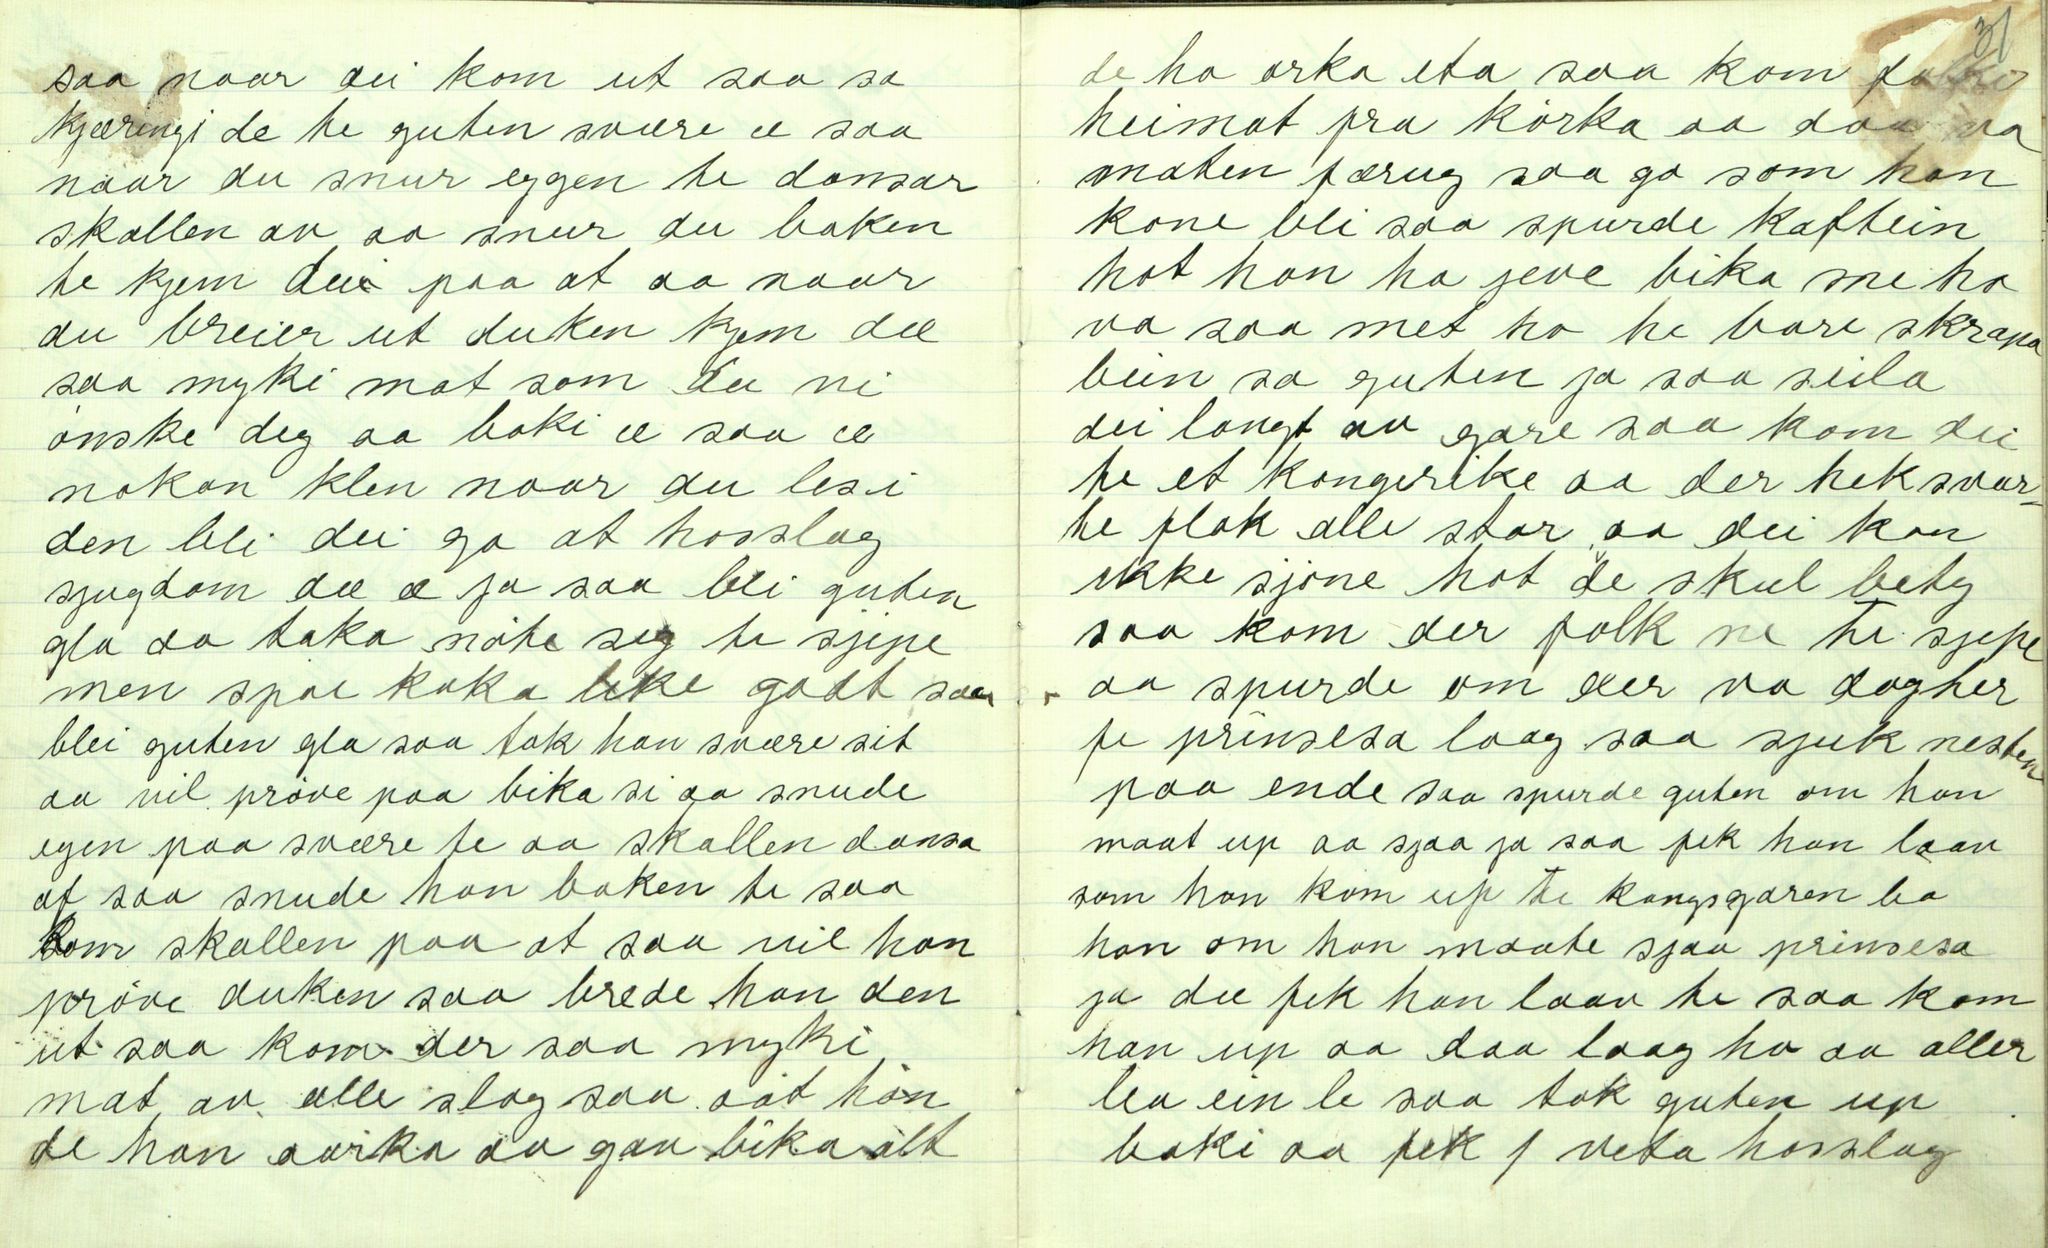 saa naar dei kom ut saa sa
kjæringi de te guten svære æ saa
naar du snur eggen te dansar
skallen av aa snur du baken
te kjem dei paa at aa naar
du breier ut duken kjem dæ
saa myki mat som du vi
ònske deg aa boki æ saa æ
nokon klen naar du les i
den bli dei go at hosslag
sjugdom dæ æ ja saa bli guten
gla aa taka nòte seg te sjipe
men spæ kaka like godt saa
blei guten gla saa tok han svære sit
aa vil pròve paa bika si aa snude
egen paa svære te aa skallen dansa
af saa snude han baken te saa
kom skallen paa at saa vil han
pròve duken saa brede han den
ut saa kom der saa myki
mat av alle slag saa aat han
de han aarka aa gav bika alt
31
de ho orka eta saa kom folki
heimat fra kòrka aa daa va
maten færug saa go som han
kone bli saa spurde kaftein
hot han ha jeve bika me ho
va saa met ho he bare skrapa
bein sa guten ja saa seila
dei langt av gare saa kom dei
te et kongerike aa der hek svar-
te flak alle star aa dei kan
ikke sjòne hot de skul bety
saa kom der folk ne te sjepe
aa spurde om der va dogter
fe prinsesa laag saa sjuk nesten
paa ende saa spurde guten om han
maat up aa sjaa ja saa fek han laav
som han kom up te kongsgaren ba
han om han maate sjaa prinsesa
ja de fek han laav te saa kom
han up aa daa laag ho aa aller
lea ein le saa tok guten up
boki aa fek f veta hosslag